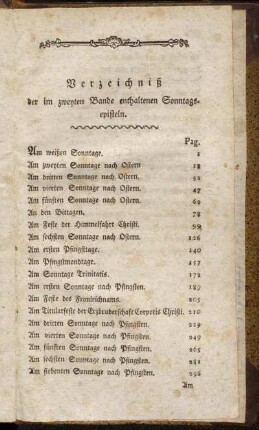 Verzeichniß
der im zweyten Bande enthaltenen Sonntags-
episteln.
Pag.
Am weißen Sonntage. 1
Am zweyten Sonntage nach Ostern 18
Am dritten Sonntage nach Ostern. 32
Am vierten Sonntage nach Ostern. 47
Am fünften Sonntage nach Ostern. 62
An den Bittagen. 78
Am Feste der Himmelfahrt Christi. 99
Am sechsten Sonntage nach Ostern. 126
Am ersten Pfingsttage. 140
Am Pfingstmondtage. 157
Am Sonntage Trinitatis. 172
Am ersten Sonntage nach Pfingsten. 189
Am Feste des Fronleichnams. 205
Am Titularfeste der Erzbruderschaft Corporis Christi. 210
Am dritten Sonntage nach Pfingsten. 229
Am vierten Sonntage nach Pfingsten. 249
Am fünften Sonntage nach Pfingsten. 265
Am sechsten Sonntage nach Pfingsten. 281
Am siebenten Sonntage nach Pfingsten. 296
Am